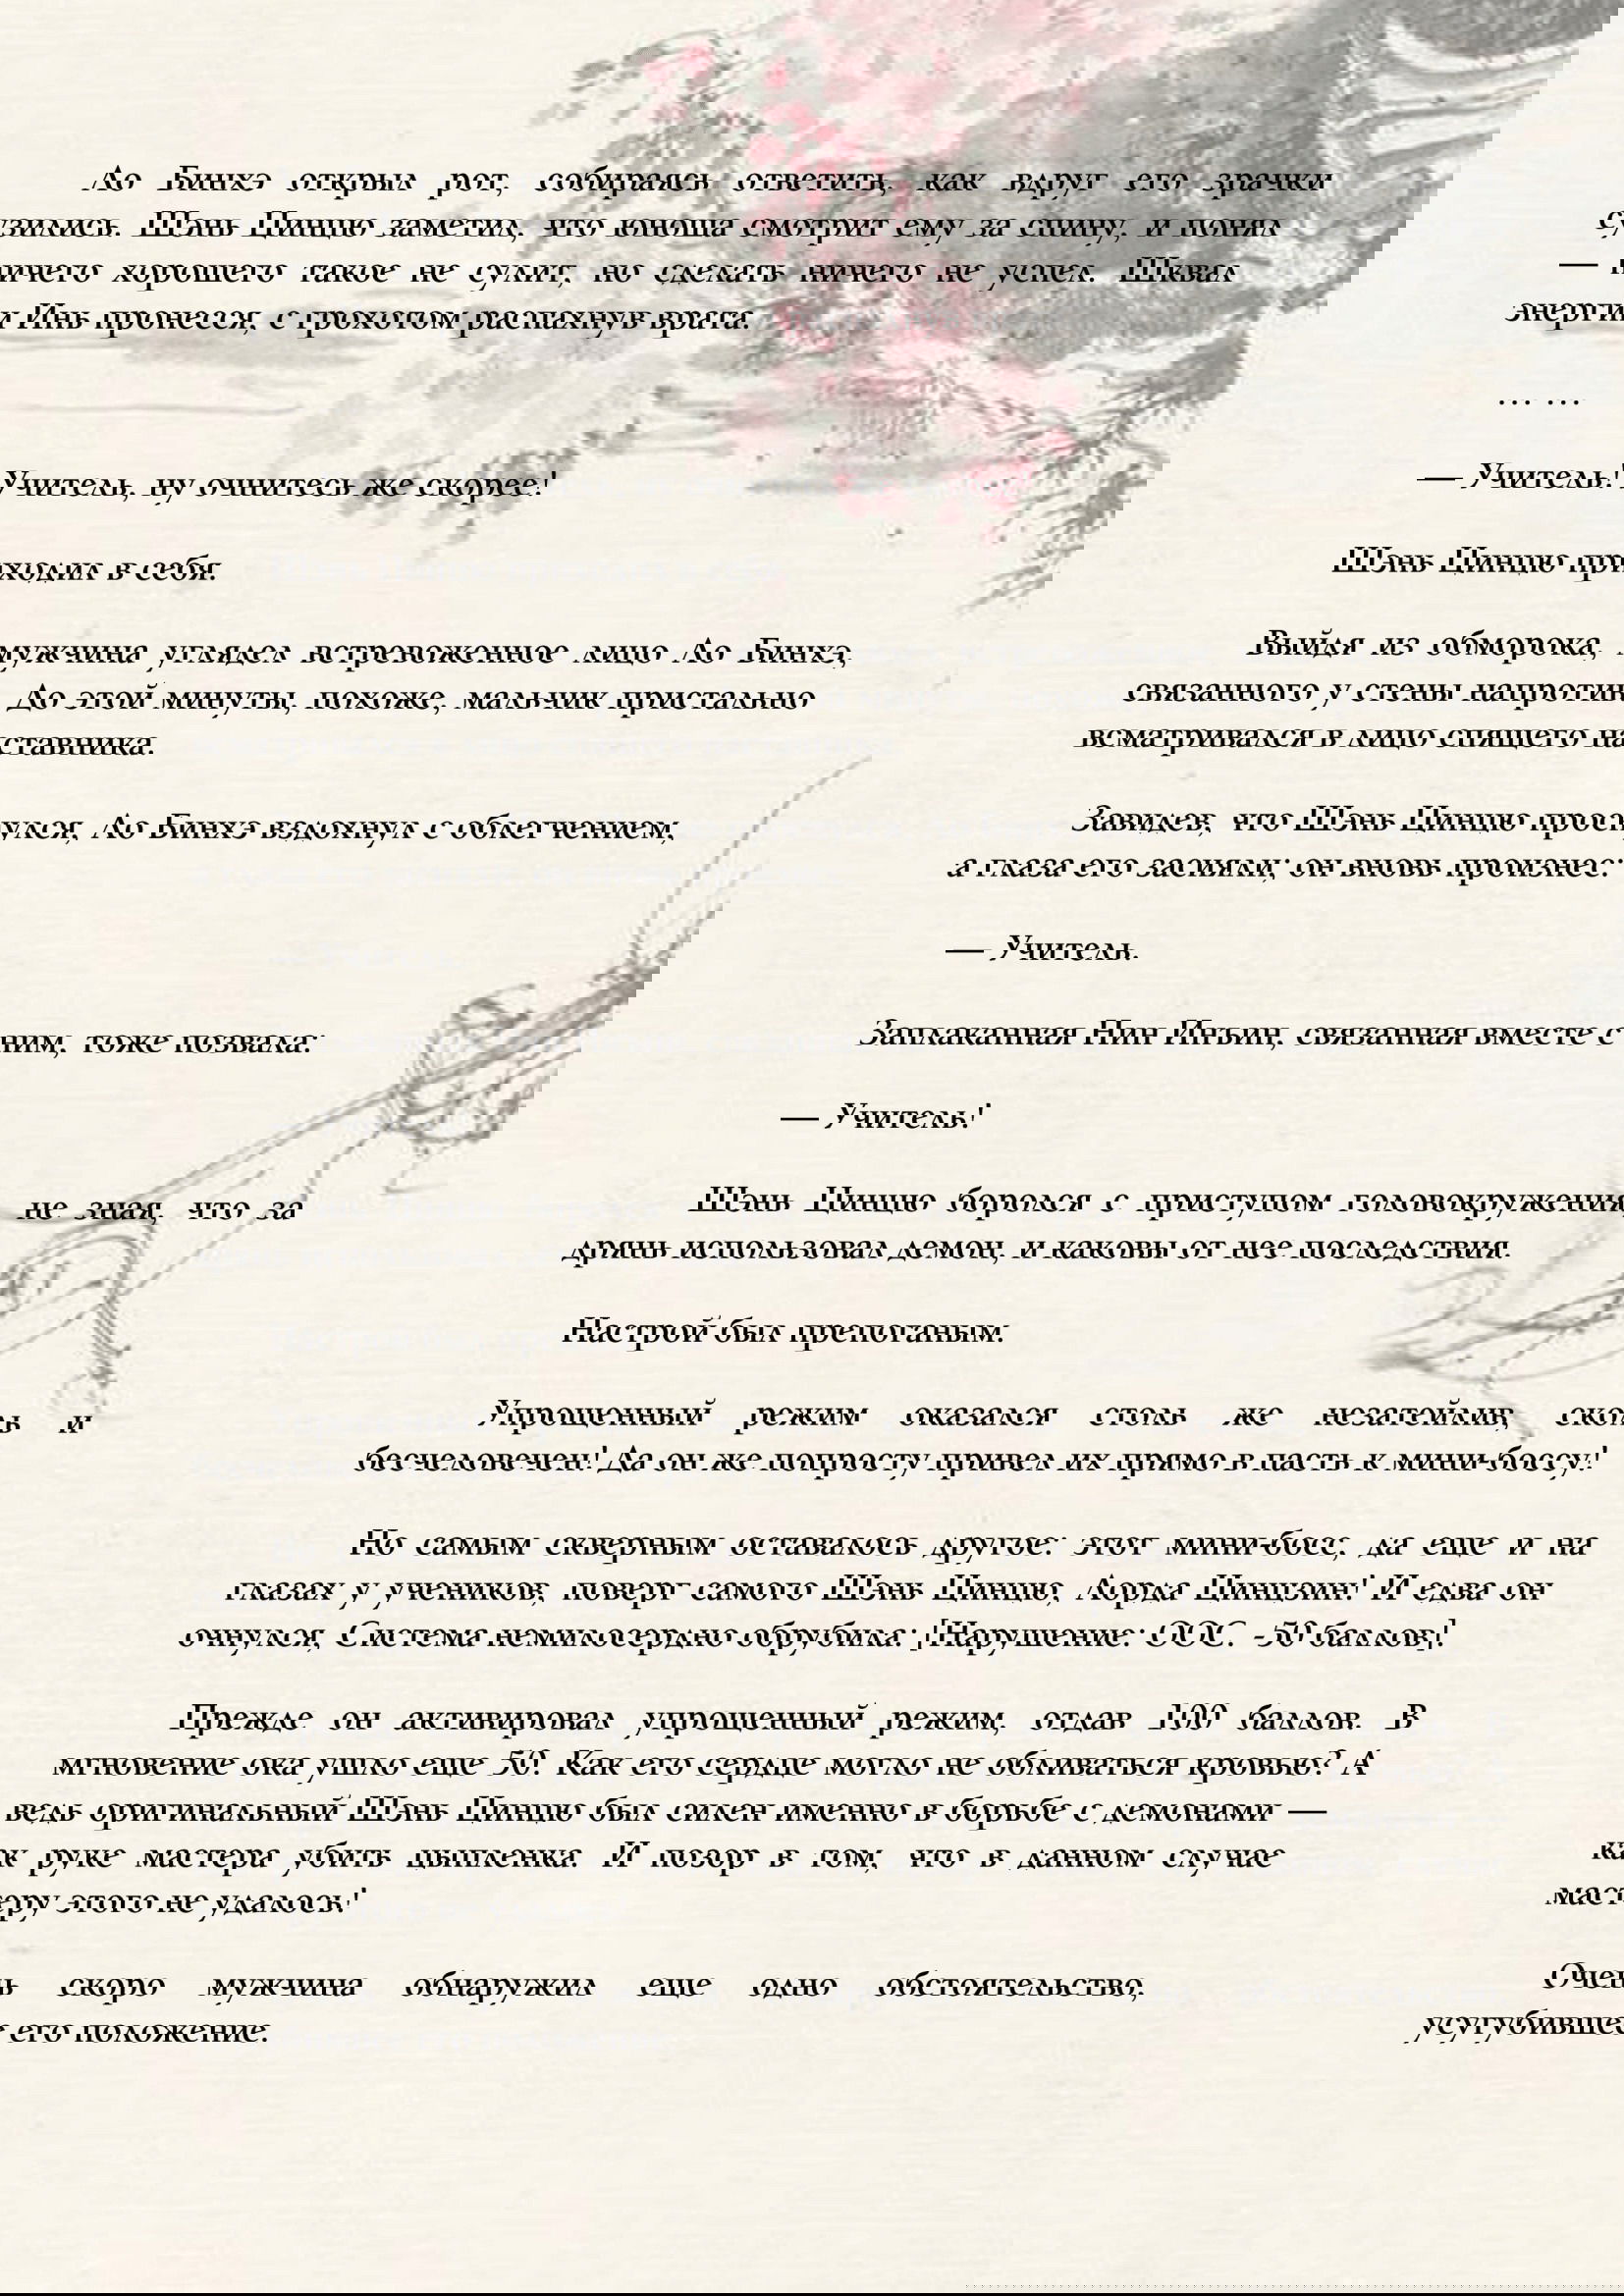 Ло Бинхэ открыл рот, собираясь ответить, как вдруг его зрачки
сузились. Шэнь Цинцю заметил, что юноша смотрит ему за спину, и понял
— ничего хорошего такое не сулит, но сделать ничего не успел. Шквал
энергии Инь пронесся, с грохотом распахнув врата.
… …
— Учитель! Учитель, ну очнитесь же скорее!
Шэнь Цинцю приходил в себя.
Выйдя из обморока, мужчина углядел встревоженное лицо Ло Бинхэ,
связанного у стены напротив. До этой минуты, похоже, мальчик пристально
всматривался в лицо спящего наставника.
Завидев, что Шэнь Цинцю проснулся, Ло Бинхэ вздохнул с облегчением,
а глаза его засияли; он вновь произнес:
— Учитель.
Заплаканная Нин Инъин, связанная вместе с ним, тоже позвала:
— Учитель!
Шэнь Цинцю боролся с приступом головокружения, не зная, что за
дрянь использовал демон, и каковы от нее последствия.
Настрой был препоганым.
Упрощенный режим оказался столь же незатейлив, сколь и
бесчеловечен! Да он же попросту привел их прямо в пасть к мини-боссу!
Но самым скверным оставалось другое: этот мини-босс, да еще и на
глазах у учеников, поверг самого Шэнь Цинцю, Лорда Цинцзин! И едва он
очнулся, Система немилосердно обрубила: [Нарушение: ООС. -50 баллов]!
Прежде он активировал упрощенный режим, отдав 100 баллов. В
мгновение ока ушло еще 50! Как его сердце могло не обливаться кровью? А
ведь оригинальный Шэнь Цинцю был силен именно в борьбе с демонами —
как руке мастера убить цыпленка. И позор в том, что в данном случае
мастеру этого не удалось!
Очень скоро мужчина обнаружил еще одно обстоятельство,
усугубившее его положение.